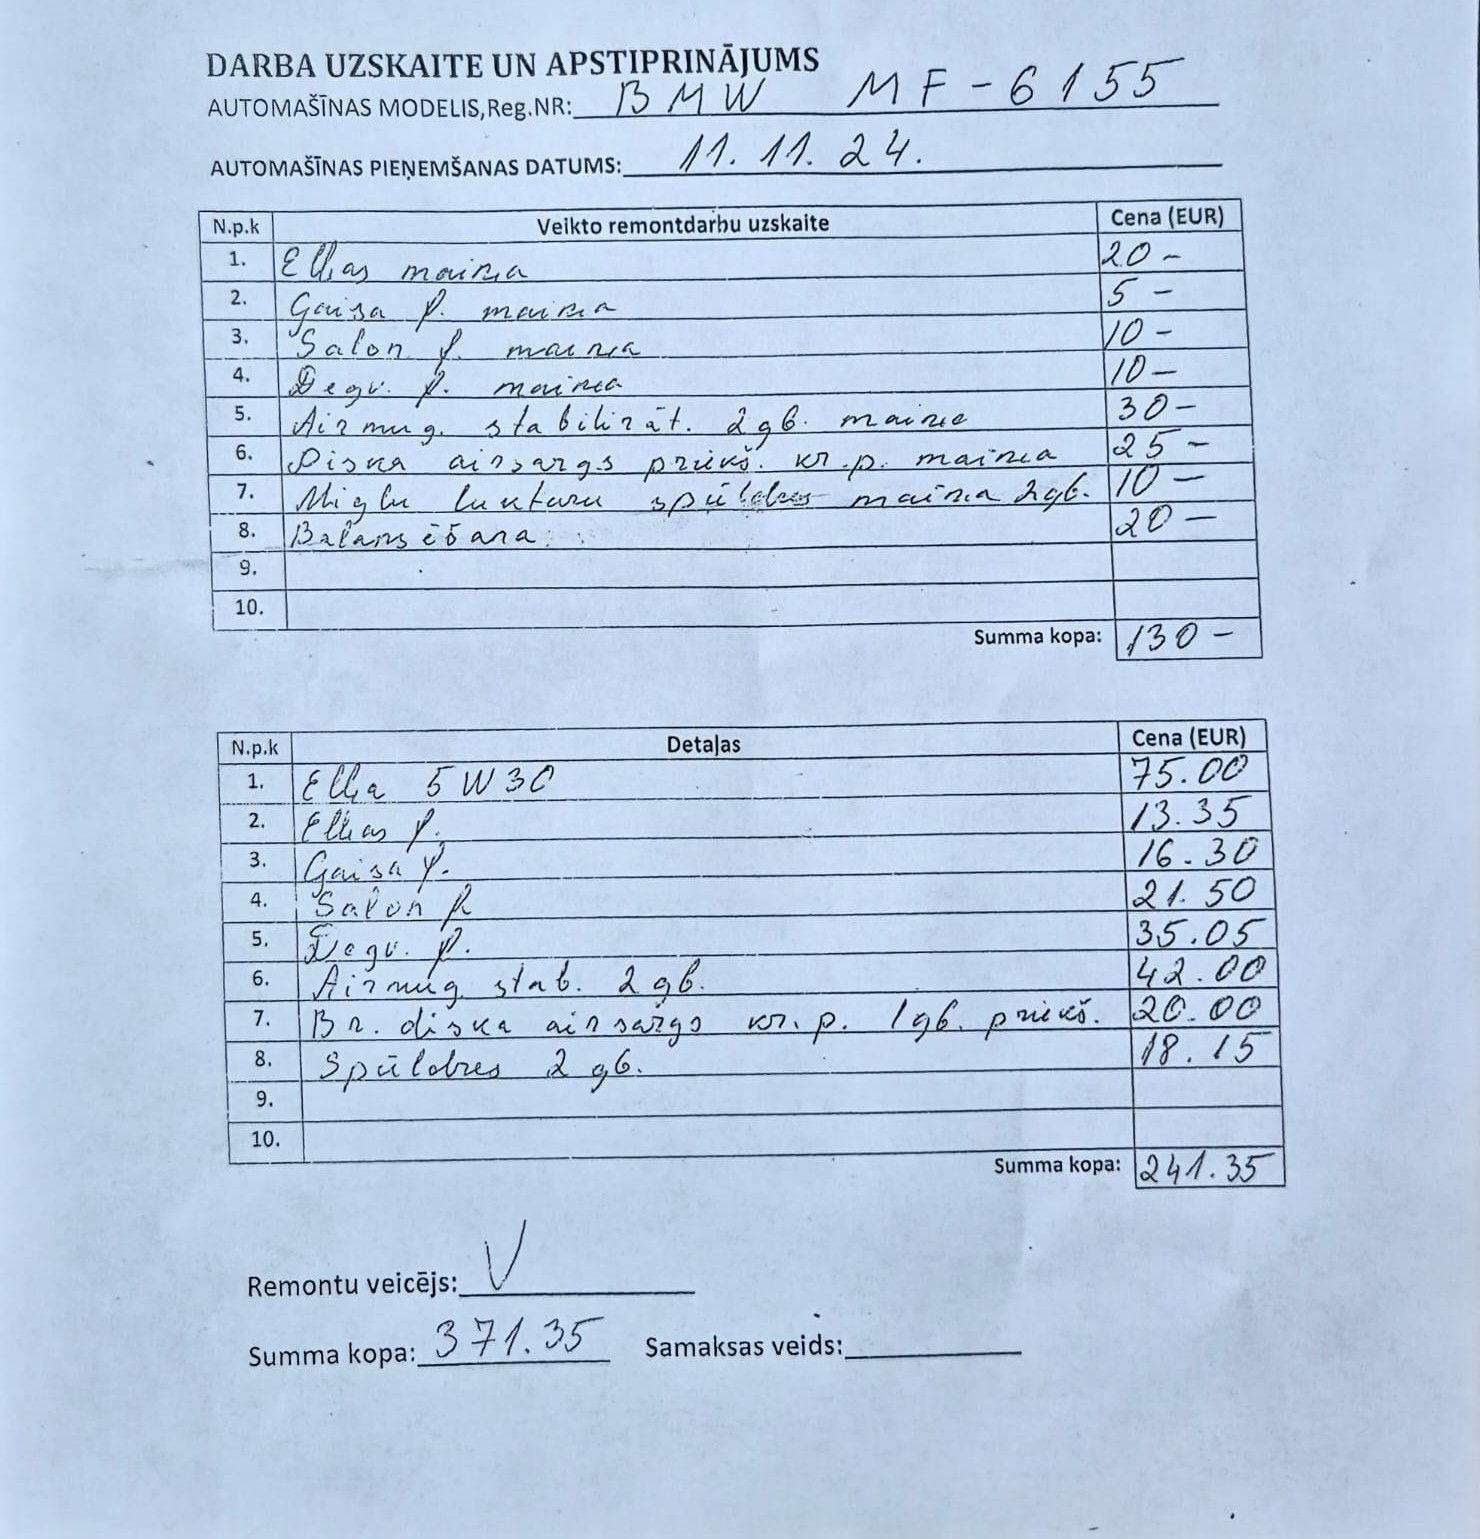 DARBA UZSKAITE UN APSTIPRINĀJUMS
AUTOMAŠĪNAS MODELIS,Reg.NR: BMW MF-6155
AUTOMAŠĪNAS PIEŅEMŠANAS DATUMS: 11.11.24.
N.p.k Veikto remontdarbu uzskaite Cena (EUR)
1. Eļļas maiņa 20 -
2. Gaisa f. maiņa 5 -
3. Salon f. maiņa 10 -
4. Degv. f. maiņa 10 -
5. Aizmug. stabilizāt. 2gb. maiņa 30 -
6. Diska aizsargs priekš. kr.p. maiņa 25 -
7. Miglu lukturu spūldzes maiņa 2gb. 10 -
8. Balansēšana 20 -
9.
10.
Summa kopa: 130 -
N.p.k Detaļas Cena (EUR)
1. Eļļa 5W30 75.00
2. Eļļas f. 13.35
3. Gaisa f. 16.30
4. Salon f. 21.50
5. Degv. f. 35.05
6. Aizmug. stab. 2gb. 42.00
7. Br. diska aizsargs kr.p. 1gb. priekš. 20.00
8. Spūldzes 2gb. 18.15
9.
10.
Summa kopa: 241.35
Remontu veicējs: V
Summa kopa: 371.35 Samaksas veids: